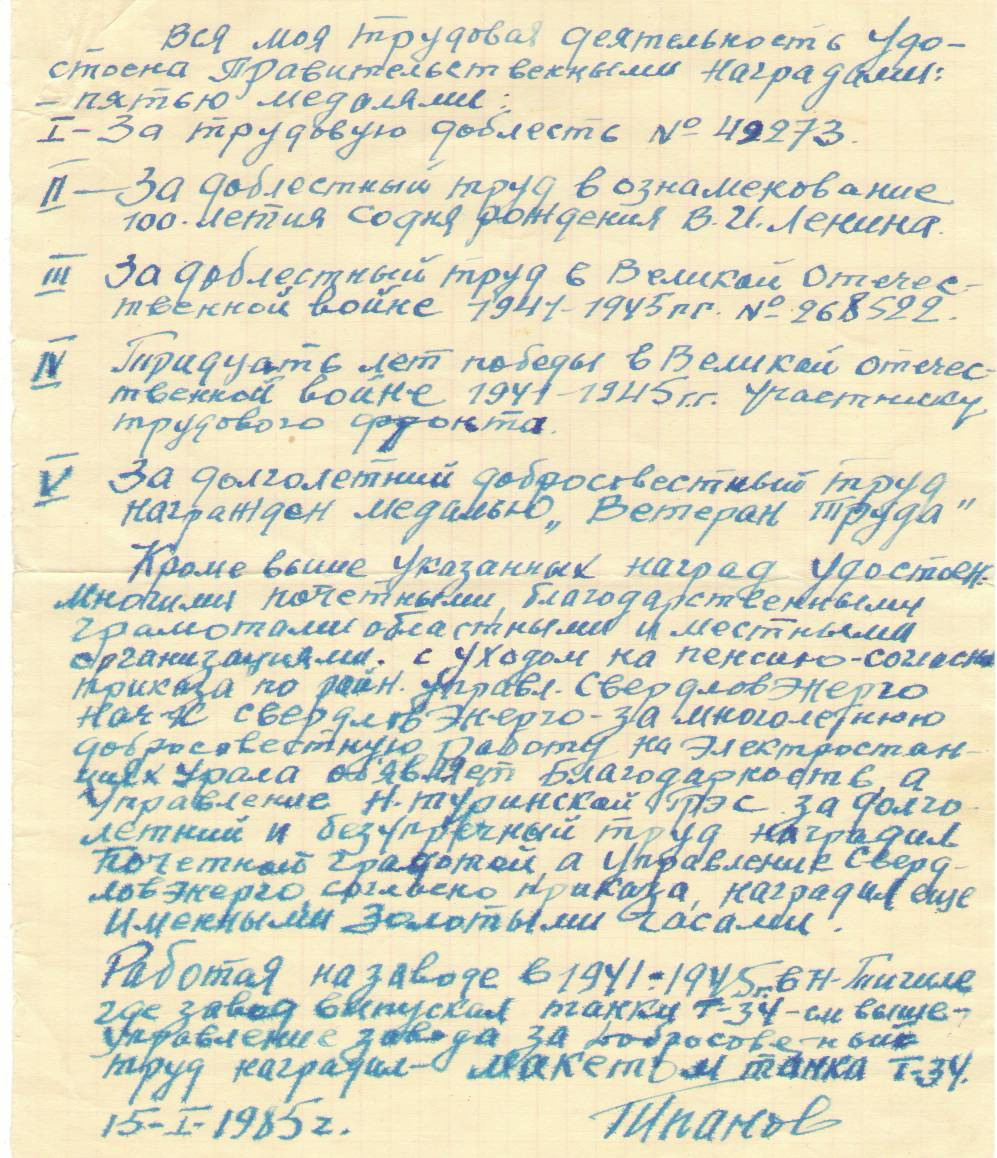 Вся моя трудовая деятельность удо-
стоена Правительственными наградами:
- пятью медалями:
I - За трудовую доблесть № 49273.
II - За доблестный труд в ознаменование
100-летия со дня рождения В.И. Ленина.
III За доблестный труд в Великой Отечес-
твенной войне 1941-1945 гг. № 268522.
IV Тридцать лет победы в Великой отечес-
твенной войне 1941-1945 г.г. участнику
трудового фронта.
V За долголетний добросовестный труд
награжден медалью „Ветеран Труда"
Кроме выше указанных наград удостоен
многими почетными, благодарственными
грамотами областными и местными
организациями. с уходом на пенсию-согласно
приказа по район. управл. СвердловЭнерго
нач-к свердловЭнерго-за многолетнюю
добросовестную работу на Электростан-
циях Урала объявляет благодарность, а
Управление Н.туринской ГРЭС за долго-
летний и безупречный труд наградил
почетной грамотой, а управление Сверд-
ловЭнерго, согласно приказа, наградил еще
именными Золотыми часами.
Работая на заводе в 1941-1945 г. в Н-Тагиле
где завод выпускал танки Т-34-см выше-
управление завода за добросовестный
труд наградил- макетом танка Т-34.
15-I-1985 г.